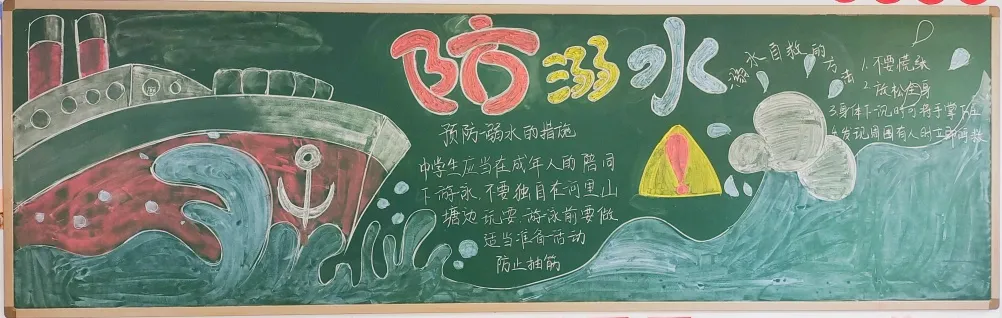 防溺水
预防溺水的措施
中学生应当在成年人的陪同
下游泳,不要独自在河里山
塘边玩耍,游泳前要做
适当准备活动
防止抽筋
溺水自救的方法
1.不要慌张
2.放松全身
3.身体下沉时可将手掌下压
4.发现周围有人时立即呼救